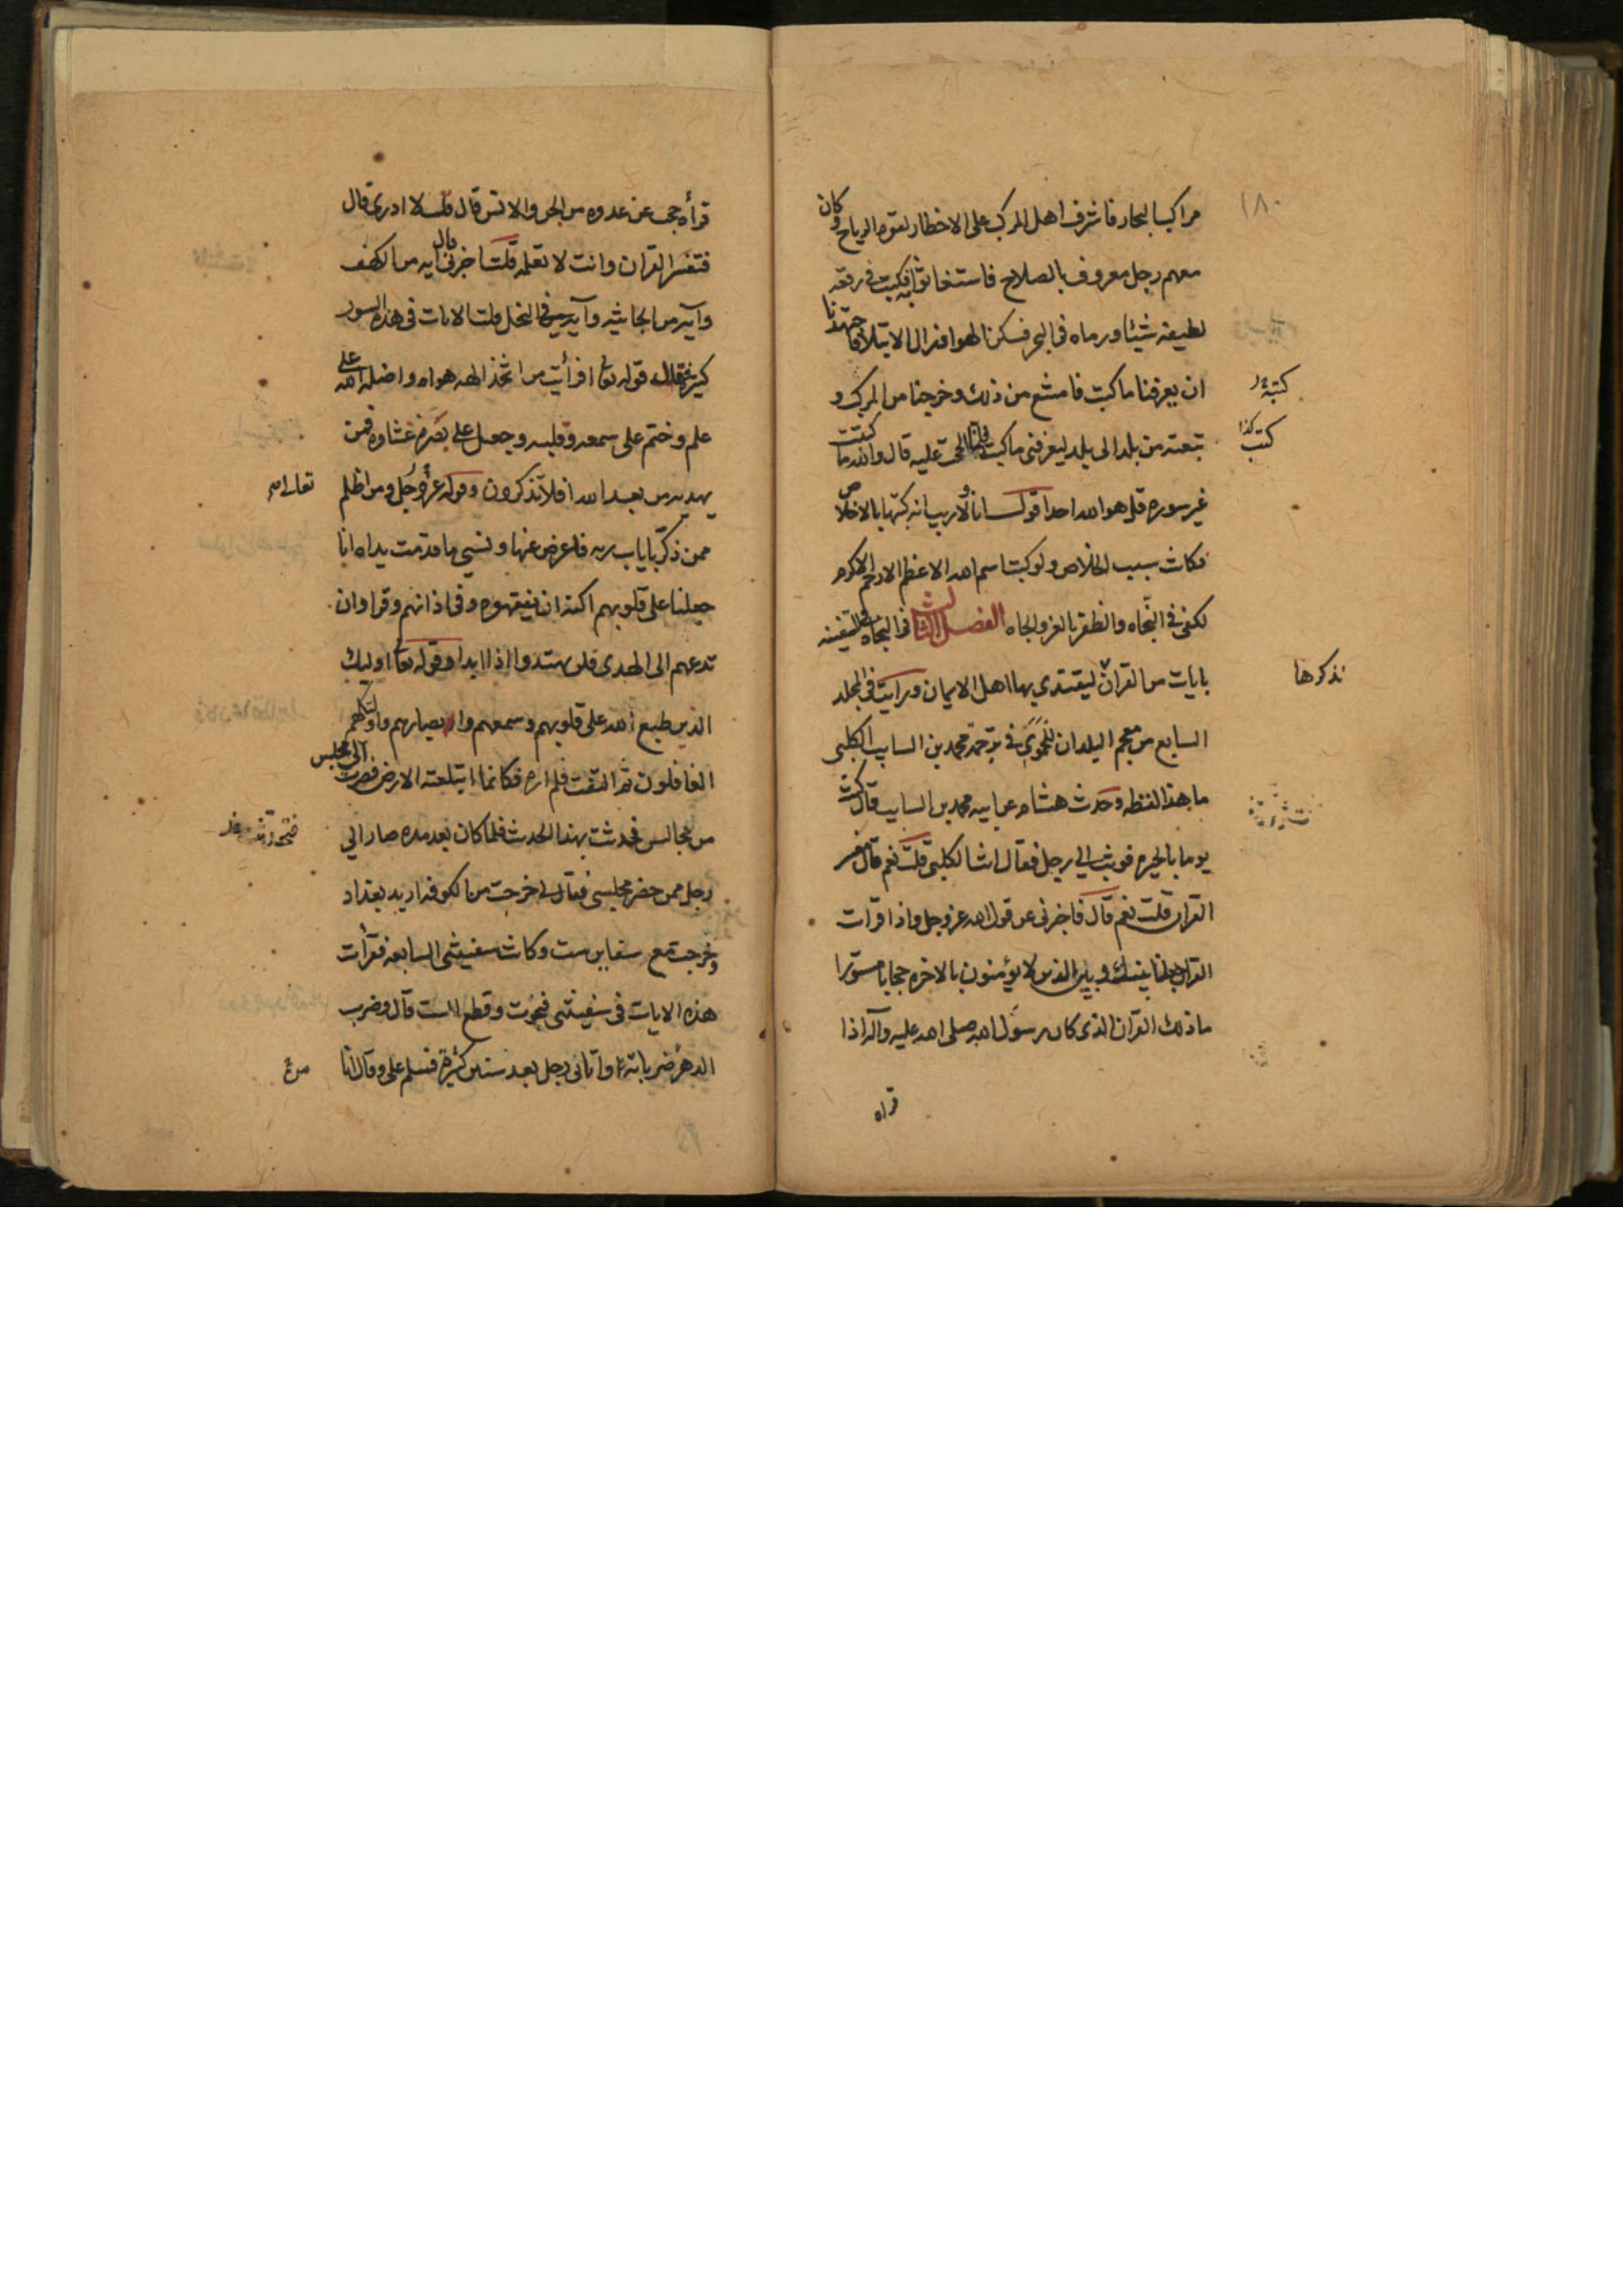 ١٨٠
مراكب البحار فاشرف اهل المركب على الاخطار لقوة الرياح وكان
معهم رجل معروف بالصلاح فاستغاثوا به فكتب في رقعة
لطيفة شيئا ورماه في البحر فسكن الهوا فزال الابتلا فاجتهدنا
ان يعرفنا ما كتب فامتنع من ذلك وخرجنا من المركب و
تبعته من بلد الى بلد ليعرفني ما كتب فلما الححت عليه قال والله ما كتبت
غير سورة قل هو الله احد اقول انا ولا ريب انه كتبها بالاخلاص
فكانت سبب الخلاص ولو كتبت اسم الله الاعظم الارحم الاكرم
لكفى في النجاه والظفر بالعز والجاه الفصل الثالث في النجاه في السفينه
بايات من القران ليقتدي بها اهل الايمان ورايت في المجلد
السابع من معجم البلدان للحموي في ترجمة محمد بن السايب الكلبي
ما هذا لفظه وحدث هشام عن ابيه محمد بن السايب قال كنت
يوما بالحيره فوثب الي رجل فقال انت الكلبي قلت نعم قال مفسر
القران قلت نعم قال فاخبرني عن قول الله عز وجل واذا قرات
القران جعلنا بينك وبين الذين لا يؤمنون بالاخره حجابا مستورا
ما ذلك القران الذي كان رسول الله صلى الله عليه وآله اذا
قراه
كتب كذا
نذكرها
قرأه حجب عن عدوه من الجن والانس قال قلت لا ادرى قال
فتفسر القران وانت لا تعلمه قلت اخبرني قال ايه من الكهف
وآيه من الجاثيه وآيه في النحل قلت الايات في هذه السور
كثيرة فقال قوله تعالى افرأيت من اتخذ الهه هواه واضله الله على
علم وختم على سمعه وقلبه وجعل على بصره غشاوه فمن
يهديه من بعد الله افلا تذكرون وقوله عز وجل ومن اظلم
ممن ذكر بايات ربه فاعرض عنها ونسي ما قدمت يداه انا
جعلنا على قلوبهم اكنة ان يفقهوه وفى اذانهم وقرا وان
تدعهم الى الهدى فلن يهتدوا اذا ابدا وقوله تعالى اوليك
الذين طبع الله على قلوبهم وسمعهم وابصارهم واوليك هم
الغافلون ثم التفت فلم اره فكانما ابتلعته الارض فصرت الى مجلس
من مجالس فحدثت بهذا الحديث فلما كان بعد مده صار الي
رجل ممن حضر مجلسى فقال لي خرجت من الكوفه اريد بغداد
وخرجت مع سفاين ست وكانت سفينتى السابعه فقرأت
هذه الايات فى سفينتى فنجوت وقطع الست قال وضرب
الدهر ضرباته واتانى رجل بعد سنين كثيرة فسلم على وقال انا